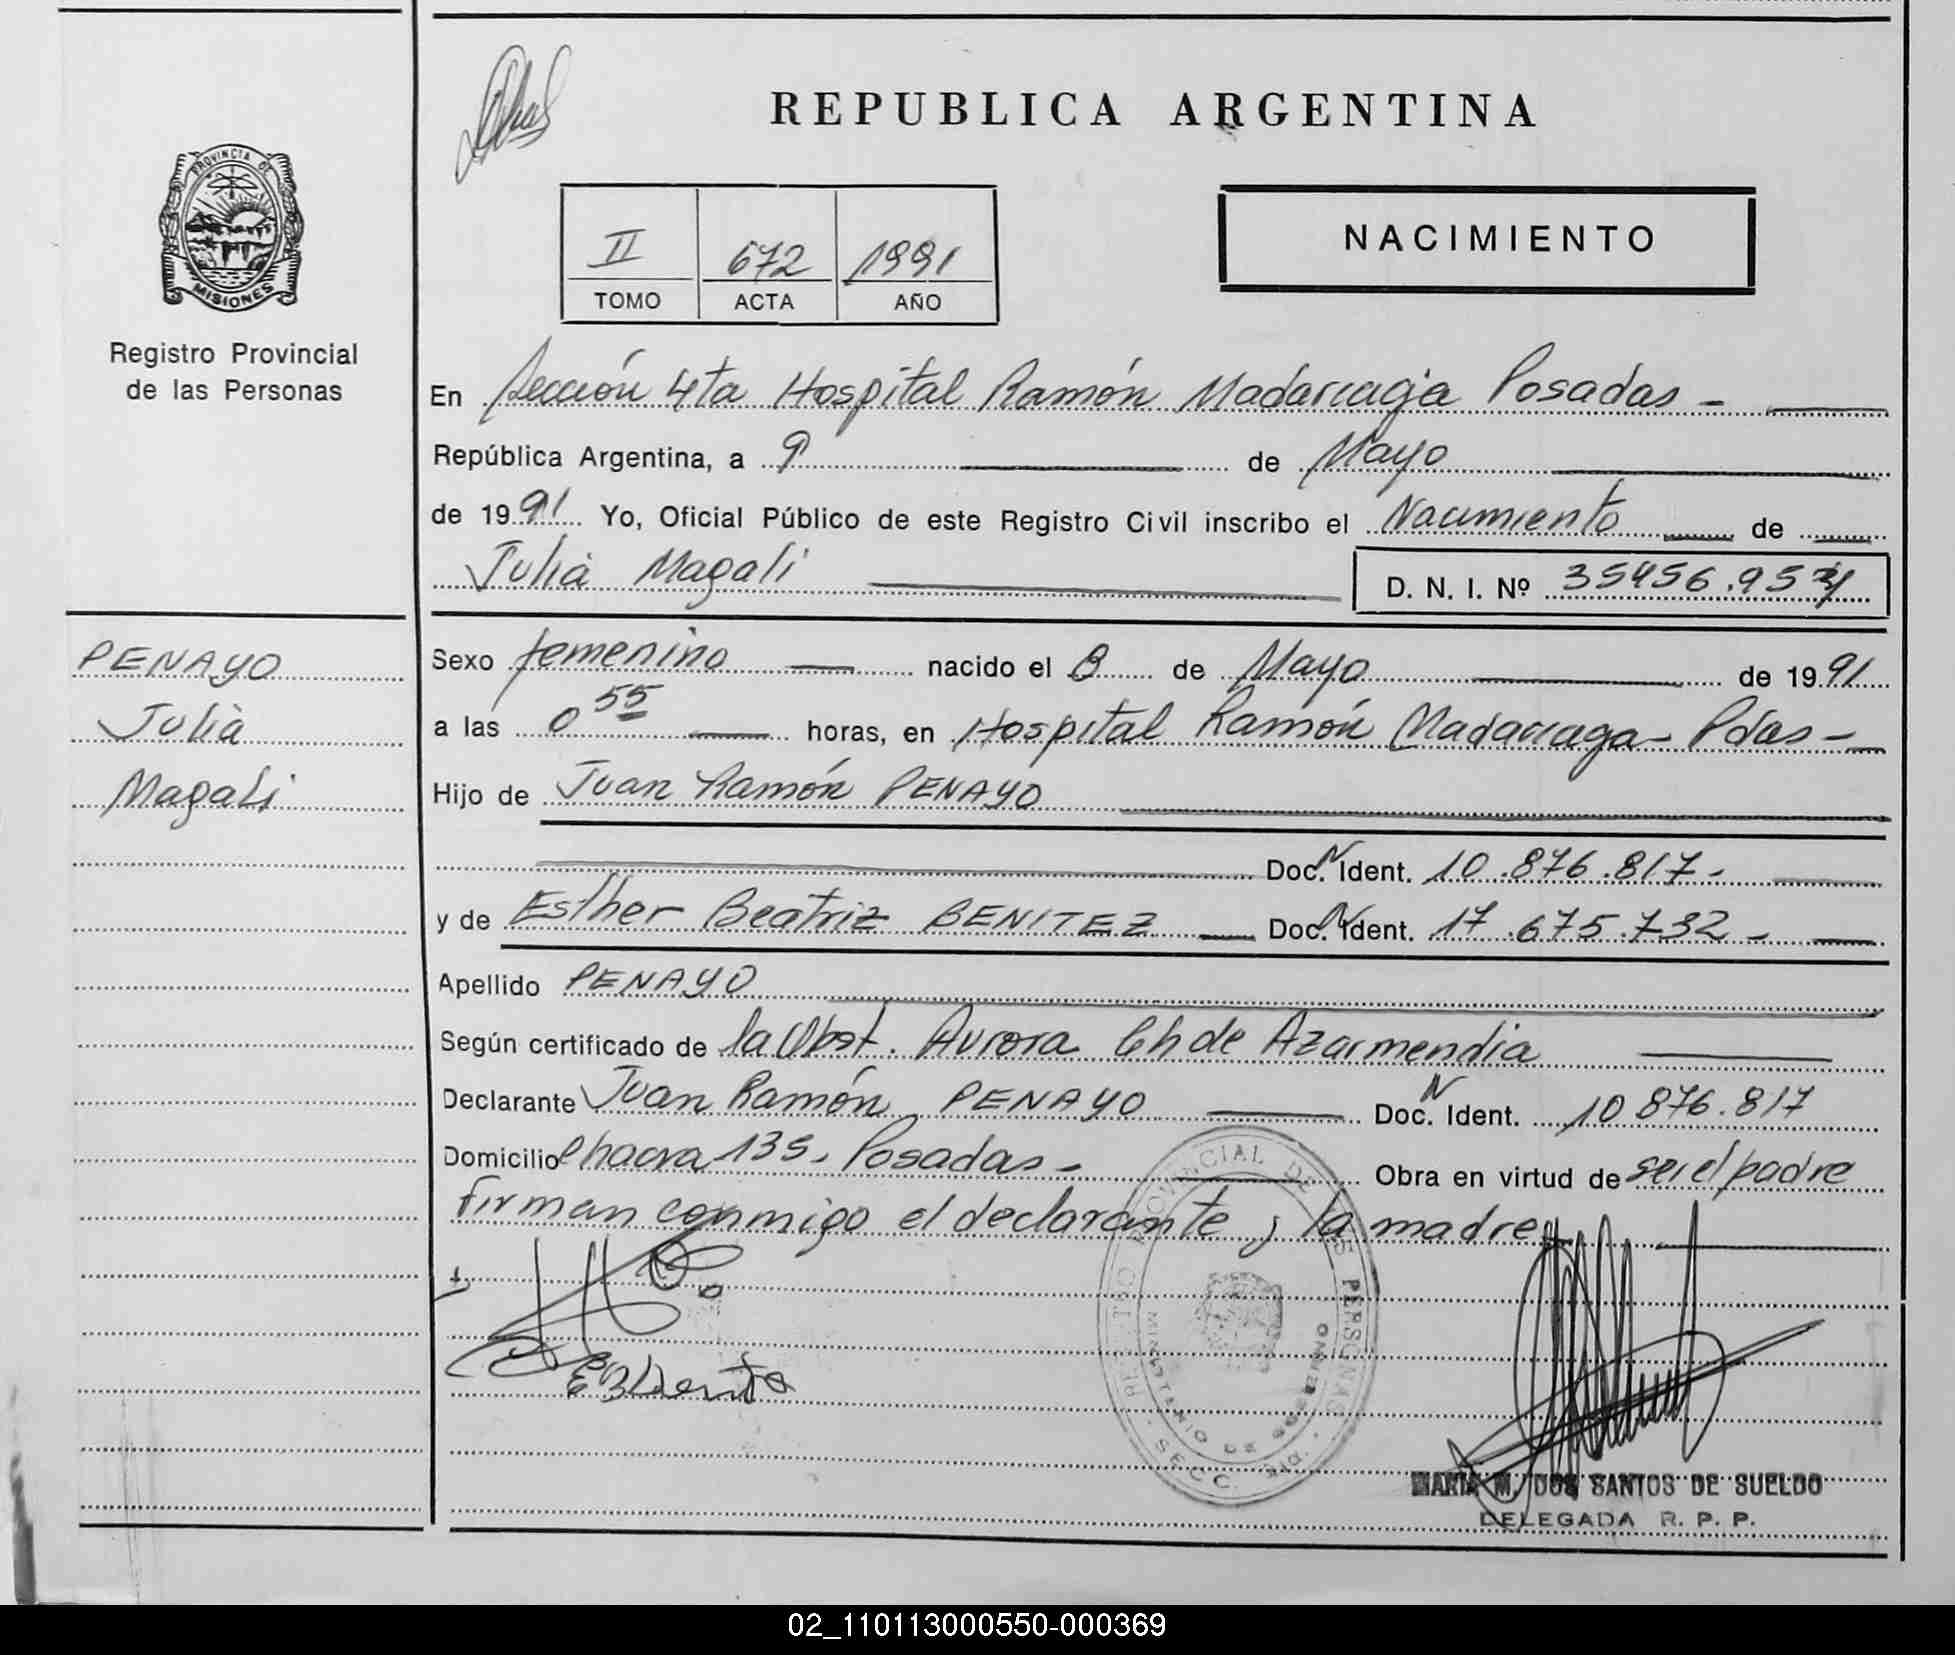 REPUBLICA ARGENTINA
PROVINCIA DE
MISIONES
Registro Provincial
de las Personas
NACIMIENTO
II 672 1991
TOMO ACTA AÑO
En Sección 4ta Hospital Ramón Madariaga Posadas -
República Argentina, a 9 de Mayo
de 1991 Yo, Oficial Público de este Registro Civil inscribo el Nacimiento de
Julia Magali D. N. I. Nº 35456.95
PENAYO
Julia
Magali
Sexo femenino nacido el 8 de Mayo de 1991
a las 0 55 horas, en Hospital Ramón Madariaga - Pdas -
Hijo de Juan Ramón PENAYO
Doc. N Ident. 10.876.817.-
y de Esther Beatriz BENITEZ Doc. N Ident. 17.675.732 -
Apellido PENAYO
Según certificado de la Obst. Aurora Ch de Azarmendia
Declarante Juan Ramón PENAYO Doc. N Ident. 10 876.817
Domicilio Chacra 135. Posadas - Obra en virtud de ser el padre
firman conmigo el declarante y la madre
REGISTRO PROVINCIAL DE LAS PERSONAS
MINISTERIO DE GOBIERNO
SECC.
MARIA M. DOS SANTOS DE SUELDO
DELEGADA R. P. P.
02_110113000550-000369